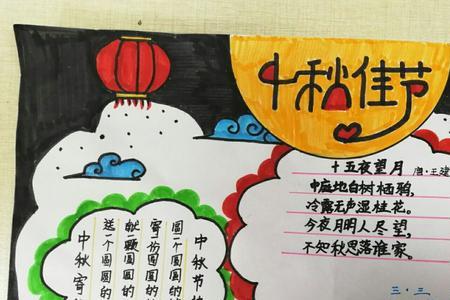 中秋佳节
十五夜望月
唐·王建
中庭地白树栖鸦，
冷露无声湿桂花。
今夜月明人尽望，
不知秋思落谁家。
三·三
中秋节
圆一个圆圆的
寄一份圆圆的
献一颗圆圆的
送一个圆圆的
中秋寄